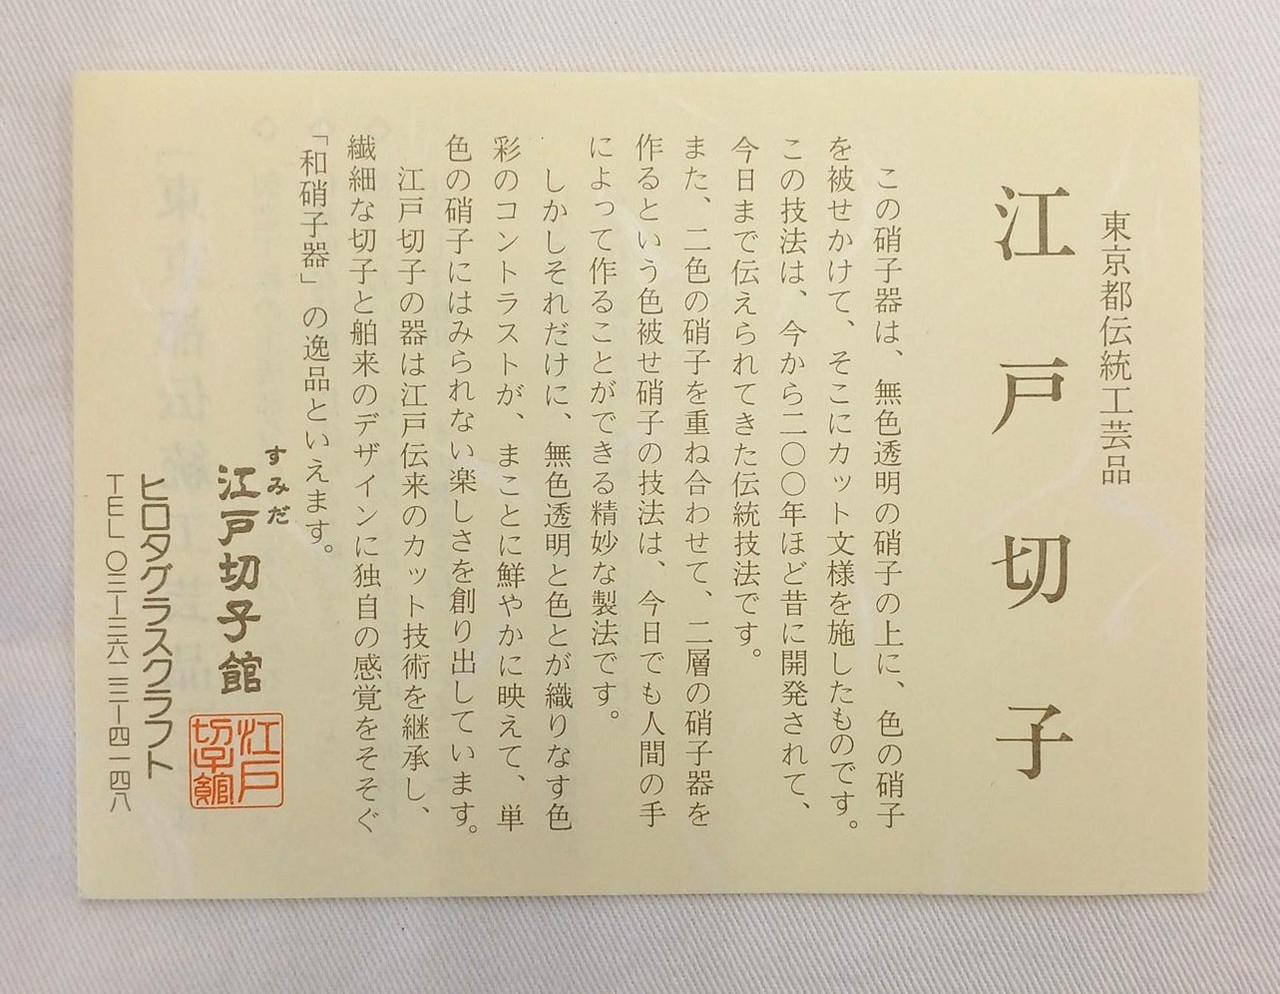 東京都伝統工芸品
江戸切子
この硝子器は、無色透明の硝子の上に、色の硝子
を被せかけて、そこにカット文様を施したものです。
この技法は、今から二〇〇年ほど昔に開発されて、
今日まで伝えられてきた伝統技法です。
また、二色の硝子を重ね合わせて、二層の硝子器を
作るという色被せ硝子の技法は、今日でも人間の手
によって作ることができる精妙な製法です。
しかしそれだけに、無色透明と色とが織りなす色
彩のコントラストが、まことに鮮やかに映えて、単
色の硝子にはみられない楽しさを創り出しています。
江戸切子の器は江戸伝来のカット技術を継承し、
繊細な切子と舶来のデザインに独自の感覚をそそぐ
「和硝子器」の逸品といえます。
すみだ
江戸切子館
江戸
切子館
ヒロタグラスクラフト
TEL〇三ー三六二三ー四一四八